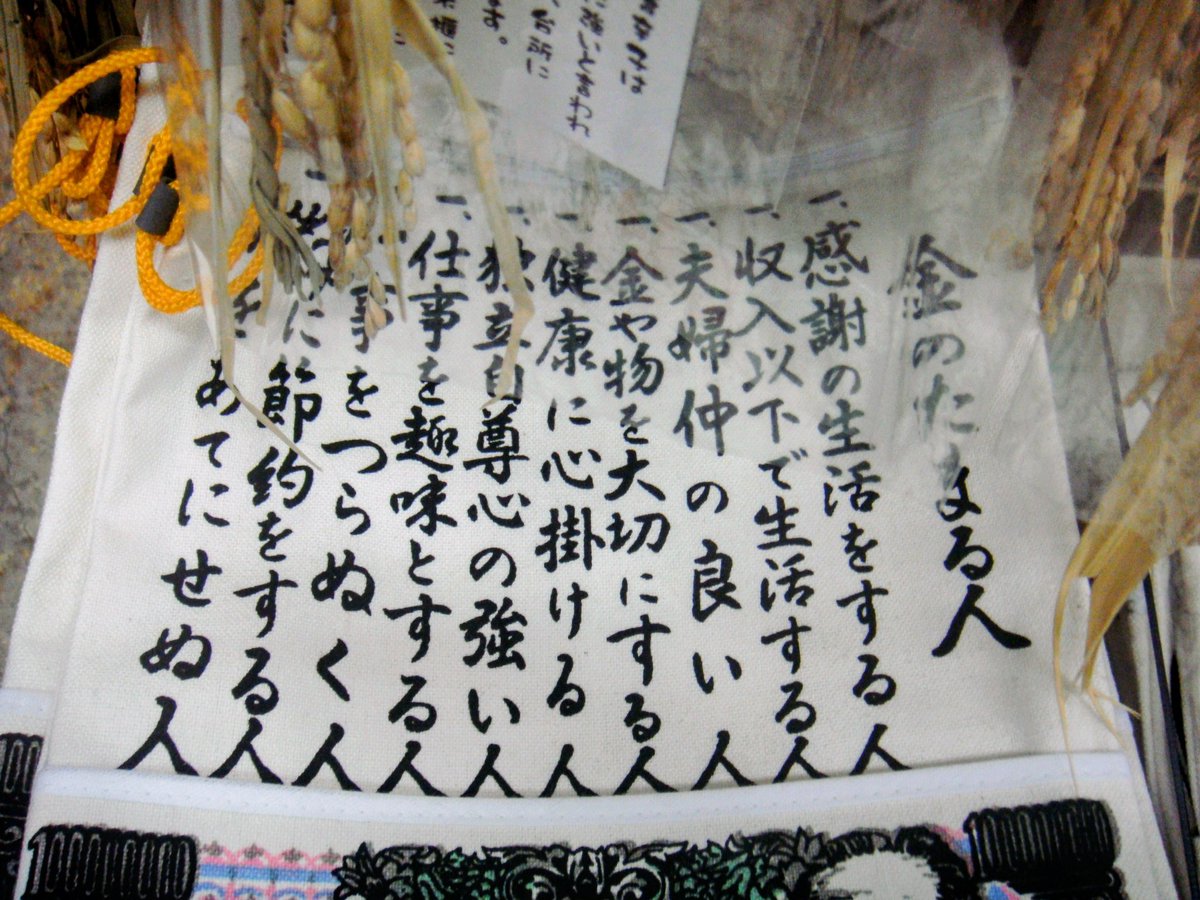 強いと言わ
ます。
金のたまる人
一、感謝の生活をする人
一、収入以下で生活する人
一、夫婦仲の良い人
一、金や物を大切にする人
一、健康に心掛ける人
一、独立自尊心の強い人
一、仕事を趣味とする人
事をつらぬく人
常に節約をする人
あてにせぬ人